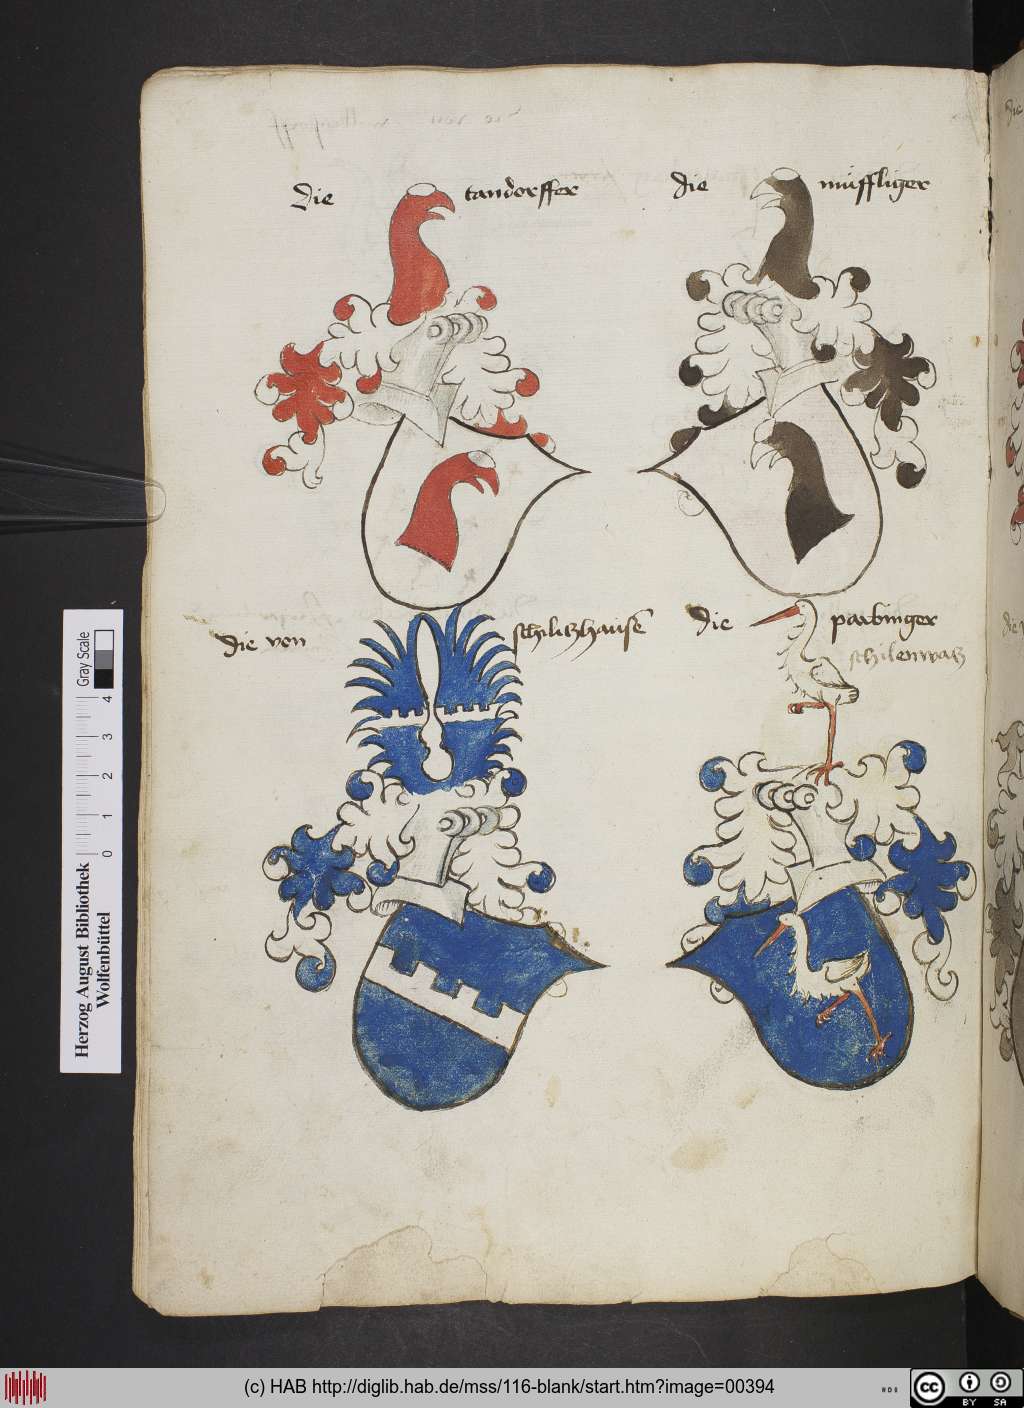 die tandorffer
die müffliger
die von schilitzhause
die parbinger
schilenwatz
Gray Scale
0 1 2 3 4
Herzog August Bibliothek
Wolfenbüttel
(c) HAB http://diglib.hab.de/mss/116-blank/start.htm?image=00394
cc BY SA